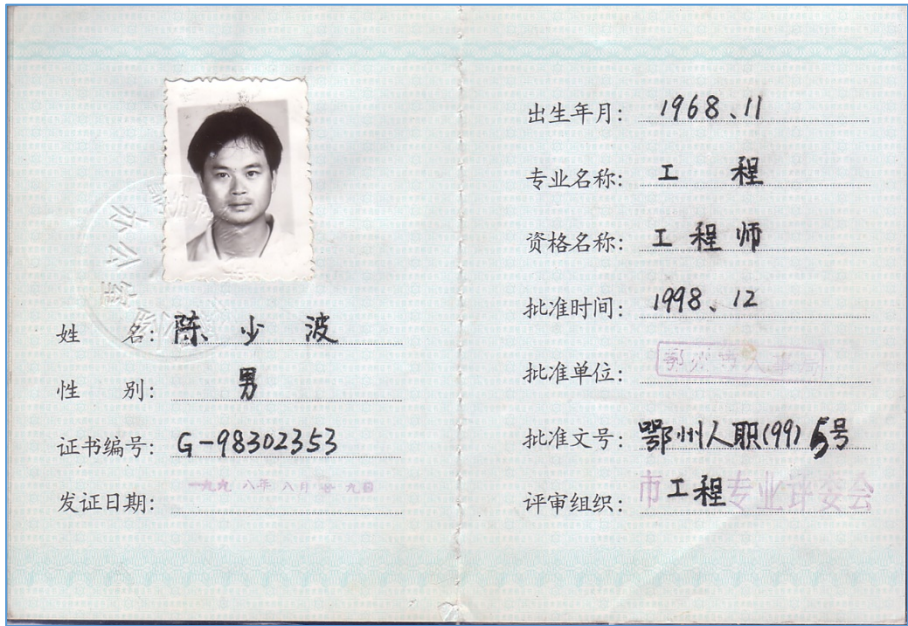 姓 名: 陈 少 波
性 别: 男
证书编号: G-98302353
发证日期: 一九九八年八月廿九日
出生年月: 1968、11
专业名称: 工 程
资格名称: 工 程 师
批准时间: 1998、12
批准单位: 鄂州市人事局
批准文号: 鄂州人职(99)5号
评审组织: 市工程专业评委会
办公室